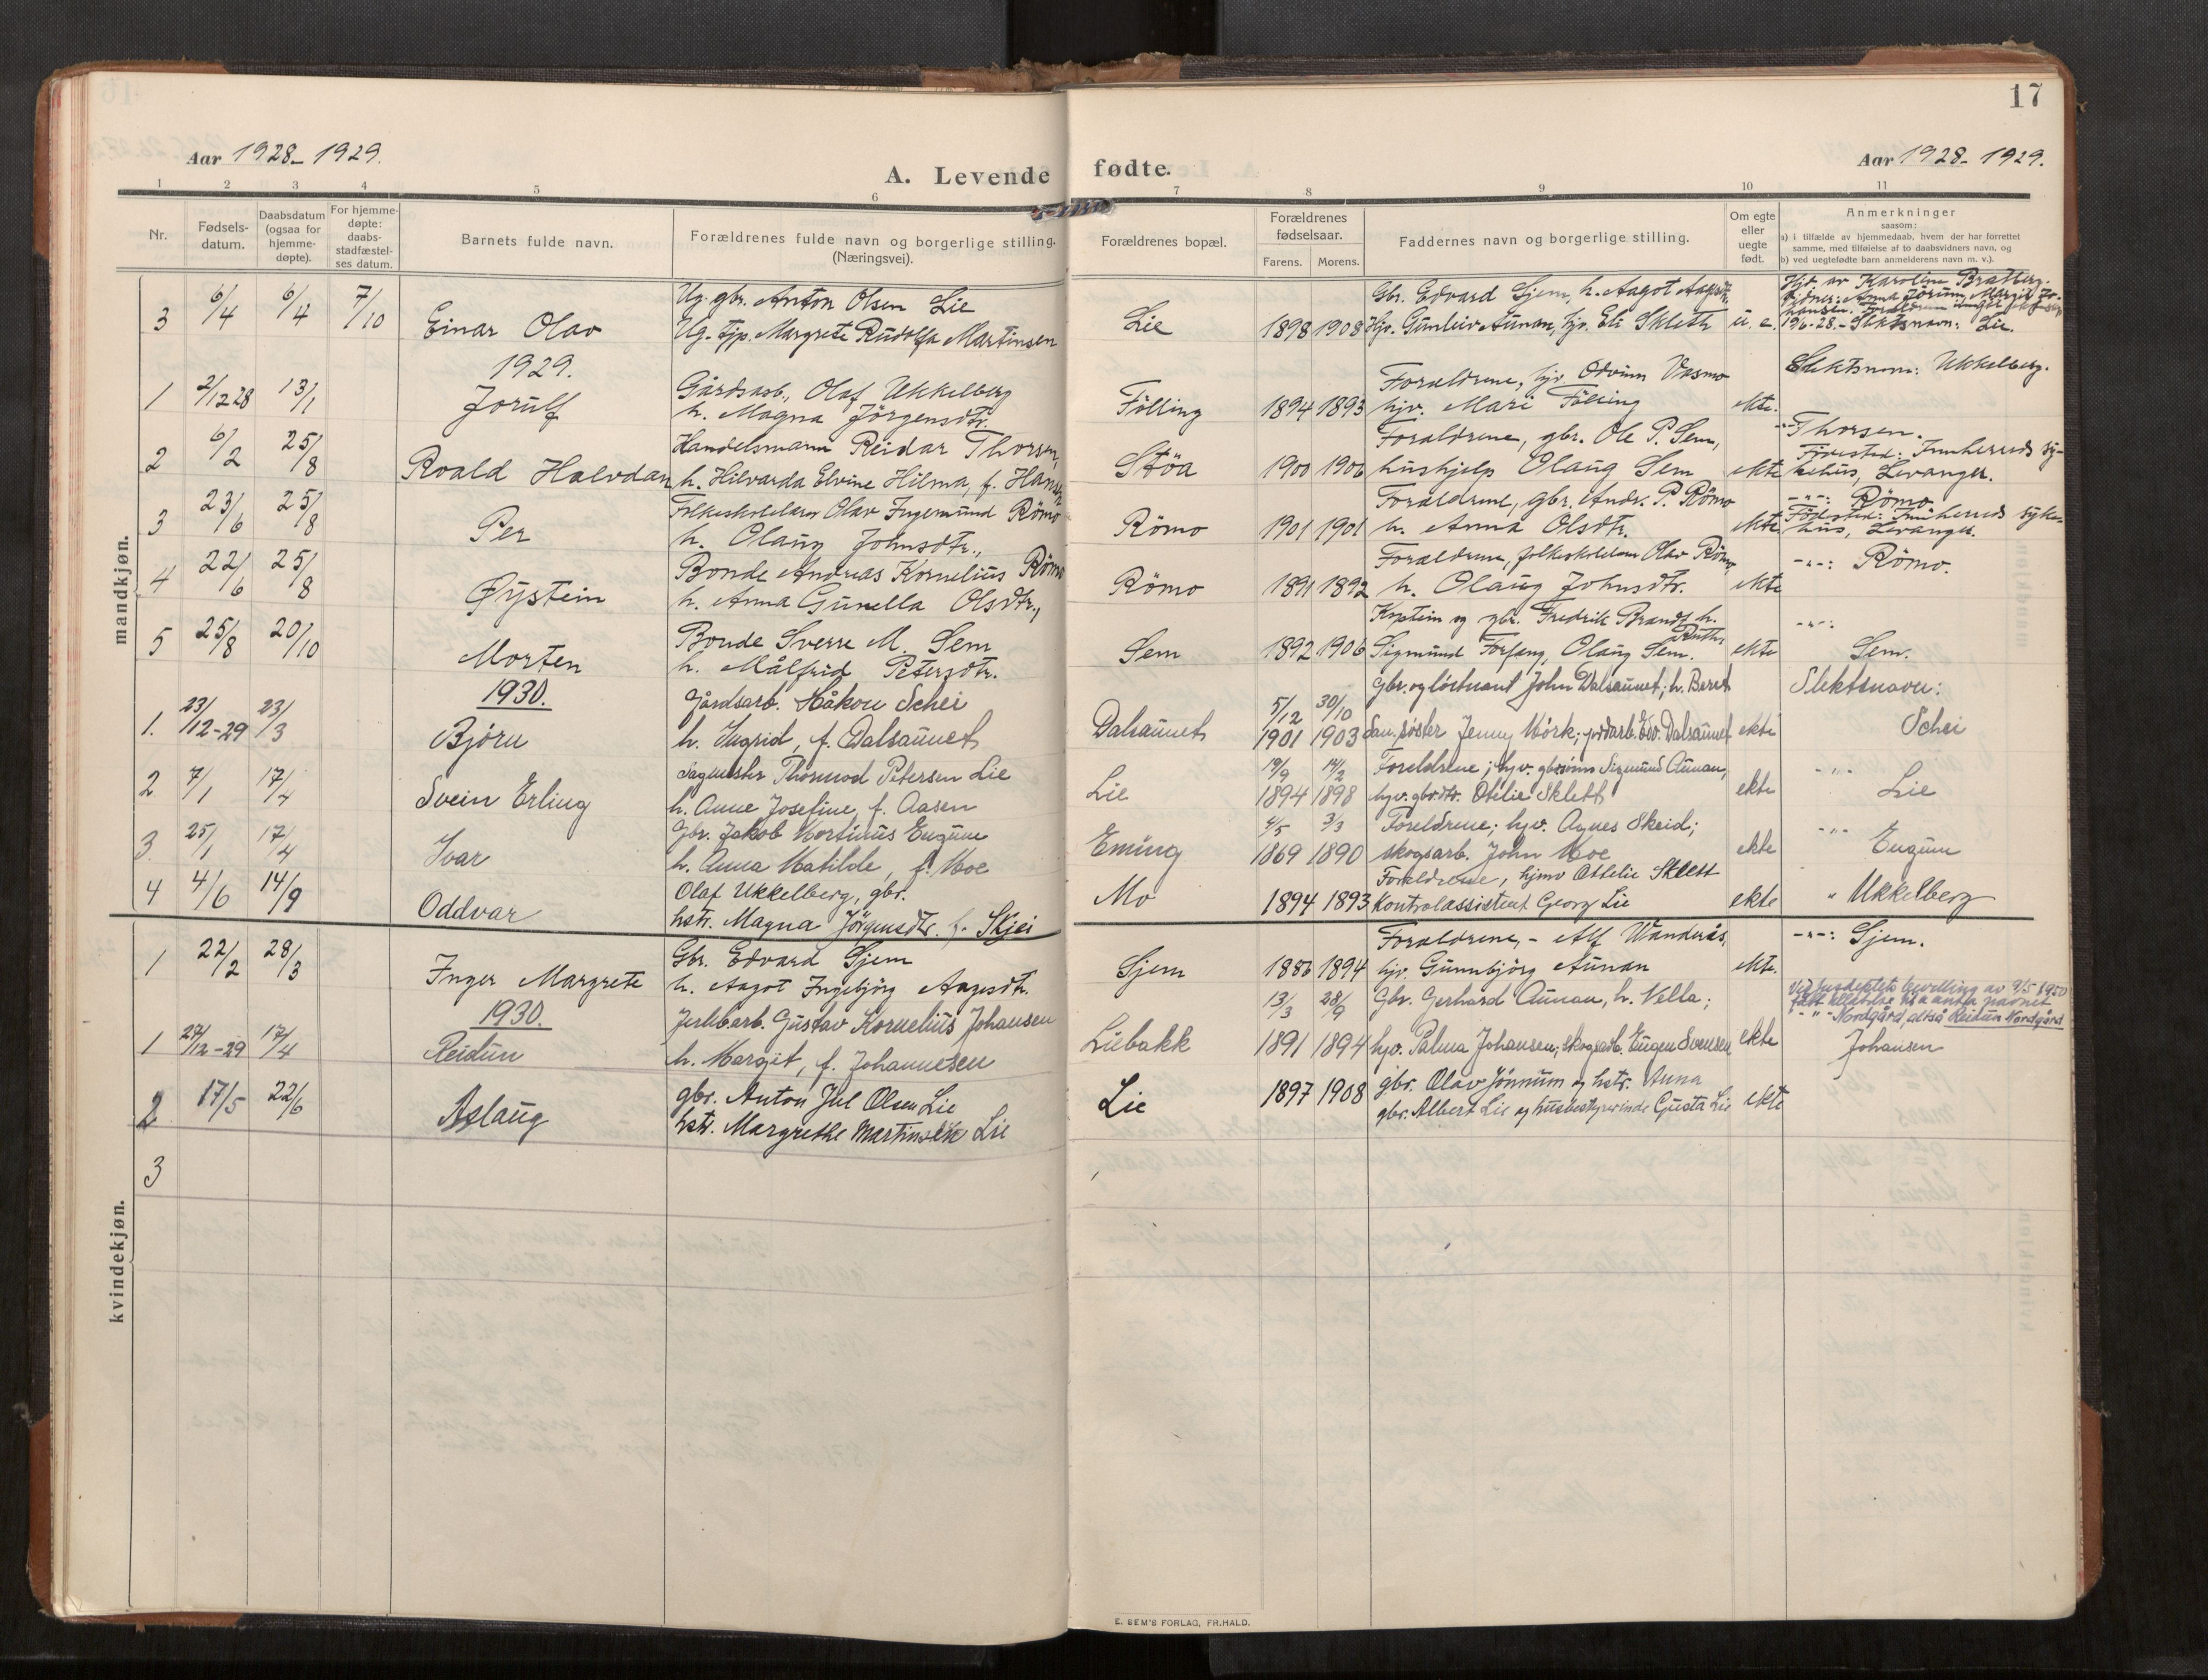 17
Aar 1928-1929.
A. Levende fødte.
Aar 1928-1929.
1 2 3 4 5 6 7 8 9 10 11
Nr.
Fødsels-
datum.
Daabsdatum
(ogsaa for
hjemme-
døpte).
For hjemme-
døpte:
daabs-
stadfæstel-
ses datum.
Barnets fulde navn.
Forældrenes fulde navn og borgerlige stilling.
(Næringsvei).
Forældrenes bopæl.
Forældrenes
fødselsaar.
Farens. Morens.
Faddernes navn og borgerlige stilling.
Om egte
eller
uegte
født.
Anmerkninger
saasom:
a) i tilfælde av hjemmedaab, hvem der har forrettet
samme, med tilføielse af to daabsvidners navn, og
b) ved uegtefødte barn anmelderens navn m. v.).
mandkjøn.
Ug. gbr. Anton Olsen Lie
Gbr. Edvard Sjem, h. Aagot Aagesdtr.
Hjd. av Karoline Bratberg.
Vidner: Anna Jörum, Margit Jo-
hansen.
3 6/4 6/4 7/10 Einar Olav
Ug. tjp. Margrete Rudolfa Martinsen
Lie 1898 1908 Hjv. Gunleiv Aunan, hjv. Eli Skleth u. e. 19/6-28.- Slektsnavn: Lie.
1929.
Gårdsarb., Olaf Ukkelberg
Foreldrene, hjv. Odvinn Vasmo
Slektsnavn: Ukkelberg.
1 2/12 28 13/1 Jorulf
h. Magna Jörgensdtr.
Fölling 1894 1893 hjv. Mari Fölling ekte.
Handelsmann Reidar Thorsen,
Foreldrene, gbr. Ole P. Sem,
-"- Thorsen.
Födested: Innherreds sy-
2 6/2 25/8 Roald Halvdan
h. Hilvarda Elvine Hilma, f. Hansen
Stöa 1900 1906 hushjelp Olaug Sem ekte kehus, Levanger.
Folkeskolelærer Olav Ingemund Römo
Foreldrene, gbr. Andr. P. Römo
-"-: Römo
Födested: Innherreds syke-
3 23/6 25/8 Per
h. Olaug Johnsdtr.,
Römo 1901 1901 h. Anna Olsdtr. ekte hus, Levanger.
Bonde Andreas Kornelius Römo
Foreldrene, folkeskolelærer Olav Römo,
-"-: Römo.
4 22/6 25/8 Øystein
h. Anna Gunella Olsdtr.,
Römo 1891 1892 h. Olaug Johnsdtr. ekte
Bonde Sverre M. Sem
Kaptein og gbr. Fredrik Brandt, h.
Ruth,
-"-:
5 25/8 20/10 Morten
h. Målfrid Petersdtr.
Sem 1892 1906 Sigmund Forfang, Olaug Sem. ekte Sem.
1930.
Gårdsarb. Håkon Schei
Gbr. og löitnant John Dalsaunet; h. Beret
Slektsnavn:
1. 23/12-29 23/3 Bjørn
h. Ingrid, f. Dalsaunet
Dalsaunet 5/12 1901 30/10 1903 San. søster Jenny Mörk; jordarb. Edv. Dalsaunet ekte Schei
Sagmester Thormod Petersen Lie
Foreldrene; hjv. gbrsønn Sigmund Aunan,
2 7/1 17/4 Svein Erling
h. Anne Josefine, f. Aasen
Lie 19/9 1894 14/2 1898 hjv. gbrdtr. Otelie Sklett ekte -"- Lie
Gbr. Jakob Martinus Eugum
Foreldrene; hjv. Agnes Skeid;
3. 25/1 17/4 Ivar
h. Anna Matilde, f. Moe
Eming 4/5 1869 3/3 1890 skogsarb. John Moe ekte -"- Eugum
Olaf Ukkelberg, gbr.
Foreldrene, hjmv Ottelie Sklett
4 4/6 14/9 Oddvar
hstr. Magna Jörgensdtr. f. Skjei
Mo 1894 1893 Kontrolassistent Georg Lie ekte " Ukkelberg
kvindekjøn.
Gbr. Edvard Sjem
Foreldrene, - Alf Wanderås,
-"-: Sjem.
1 22/2 28/3 Inger Margrete
h. Aagot Ingebjörg Aagesdtr.
Sjem 1886 1894 hjv. Gunnbjörg Aunan ekte.
1930.
Jernbarb. Gustav Kornelius Johansen
Gbr. Gerhard Aunan, h. Vella;
bevilling av 9/5 1950
navnet
-"- Nordgård, altså Reidun Nordgård
1 27/12-29 17/4 Reidun
h. Margit, f. Johannesen
Liebakk 13/3 1891 28/9 1894 hjv. Palma Johansen; skogsarb. Eugen Svensen ekte Johansen
gbr. Anton Jul Olsen Lie
gbr. Olav Jönnum og hstr. Anna
2 17/5 22/6 Aslaug
hstr. Margrethe Martinsen Lie
Lie 1897 1908 gbr. Albert Lie og husbestyrerinde Gusta Lie ekte
3
E. SEM'S FORLAG, FR.HALD.